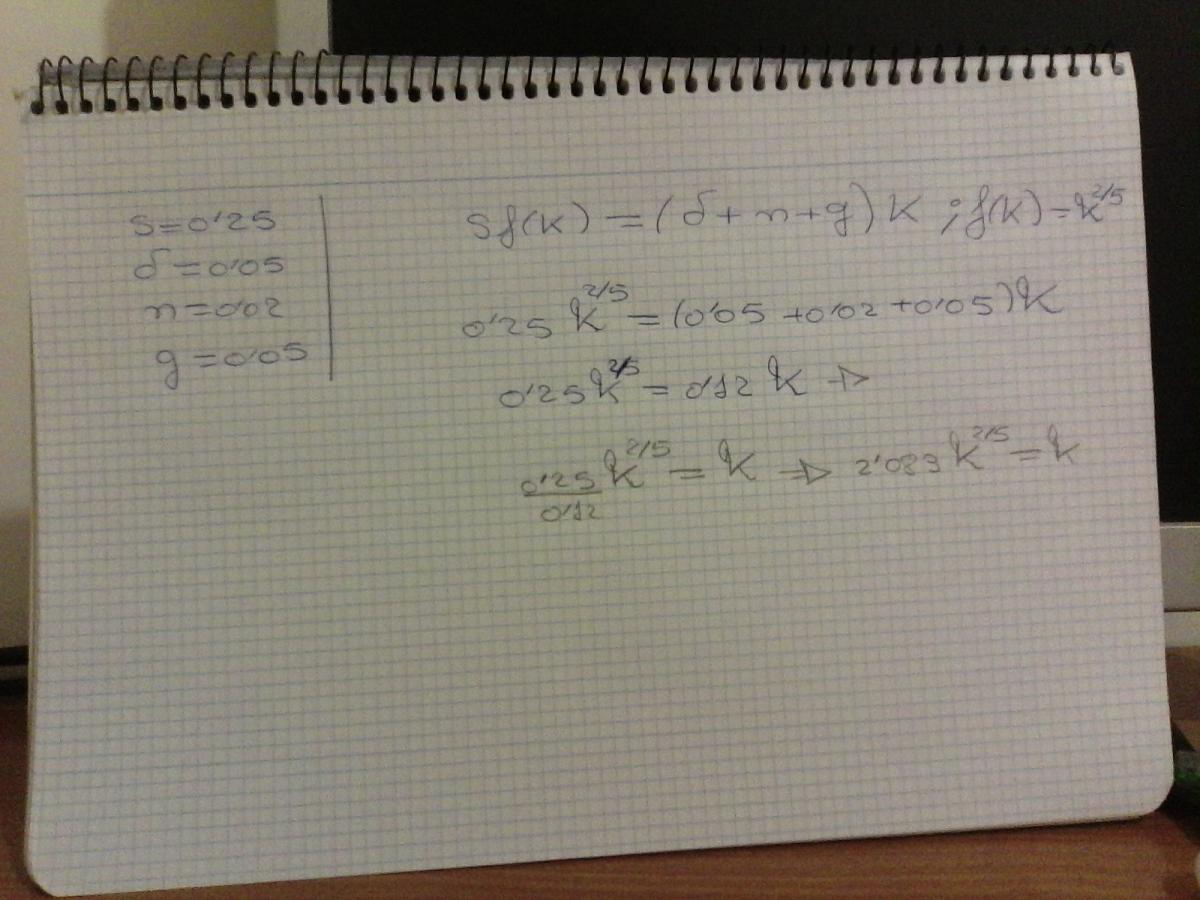 s=0'25
δ=0'05
n=0'02
g=0'05
Sf(k)=(δ+n+g)k ; f(k)=k^2/5
0'25 k^2/5 =(0'05 +0'02 +0'05)k
0'25k^2/5 = 0'12 k ⇒
0'25/0'12 k^2/5 = k ⇒ 2'083 k^2/5 = k